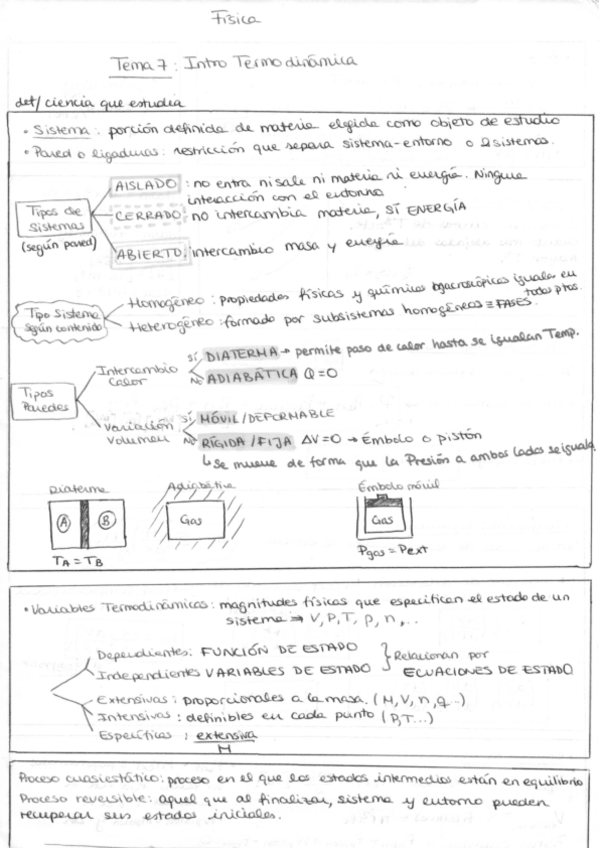 Física
Tema 7: Intro Termodinámica
def/ ciencia que estudia
• Sistema: porción definida de materia elegida como objeto de estudio
• Pared o ligaduras: restricción que separa sistema-entorno o 2 sistemas.
Tipos de sistemas (según pared)
AISLADO: no entra ni sale ni materia ni energía. Ninguna
interacción con el entorno
CERRADO: no intercambia materia, SÍ ENERGÍA
ABIERTO: intercambio masa y energía
Tipo Sistema según contenido
Homogéneo: propiedades físicas y químicas macroscópicas iguales en
todo ptos.
Heterogéneo: formado por subsistemas homogéneos ≡ FASES.
Tipos Paredes
Intercambio Calor
sí DIATERMA → permite paso de calor hasta se igualan Temp.
No ADIABÁTICA Q=0
Variación Volumen
sí MÓVIL/DEFORMABLE
No RÍGIDA/FIJA ΔV=0 → Émbolo o pistón
↳ Se mueve de forma que la Presión a ambos lados se iguala
Diaterma Adiabática Émbolo móvil
A B Gas Gas
TA = TB Pgas = Pext
• Variables Termodinámicas: magnitudes físicas que especifican el estado de un
sistema ⇒ V, P, T, ρ, n, ..
Dependientes: FUNCIÓN DE ESTADO
Independientes VARIABLES DE ESTADO
} Relacionan por
ECUACIONES DE ESTADO
Extensivas: proporcionales a la masa. (M, V, n, q..)
Intensivas: definibles en cada punto (P, T...)
Específicas: extensiva
M
Proceso cuasiestático: proceso en el que los estados intermedios están en equilibrio
Proceso reversible: aquel que al finalizar, sistema y entorno pueden
recuperar sus estados iniciales.